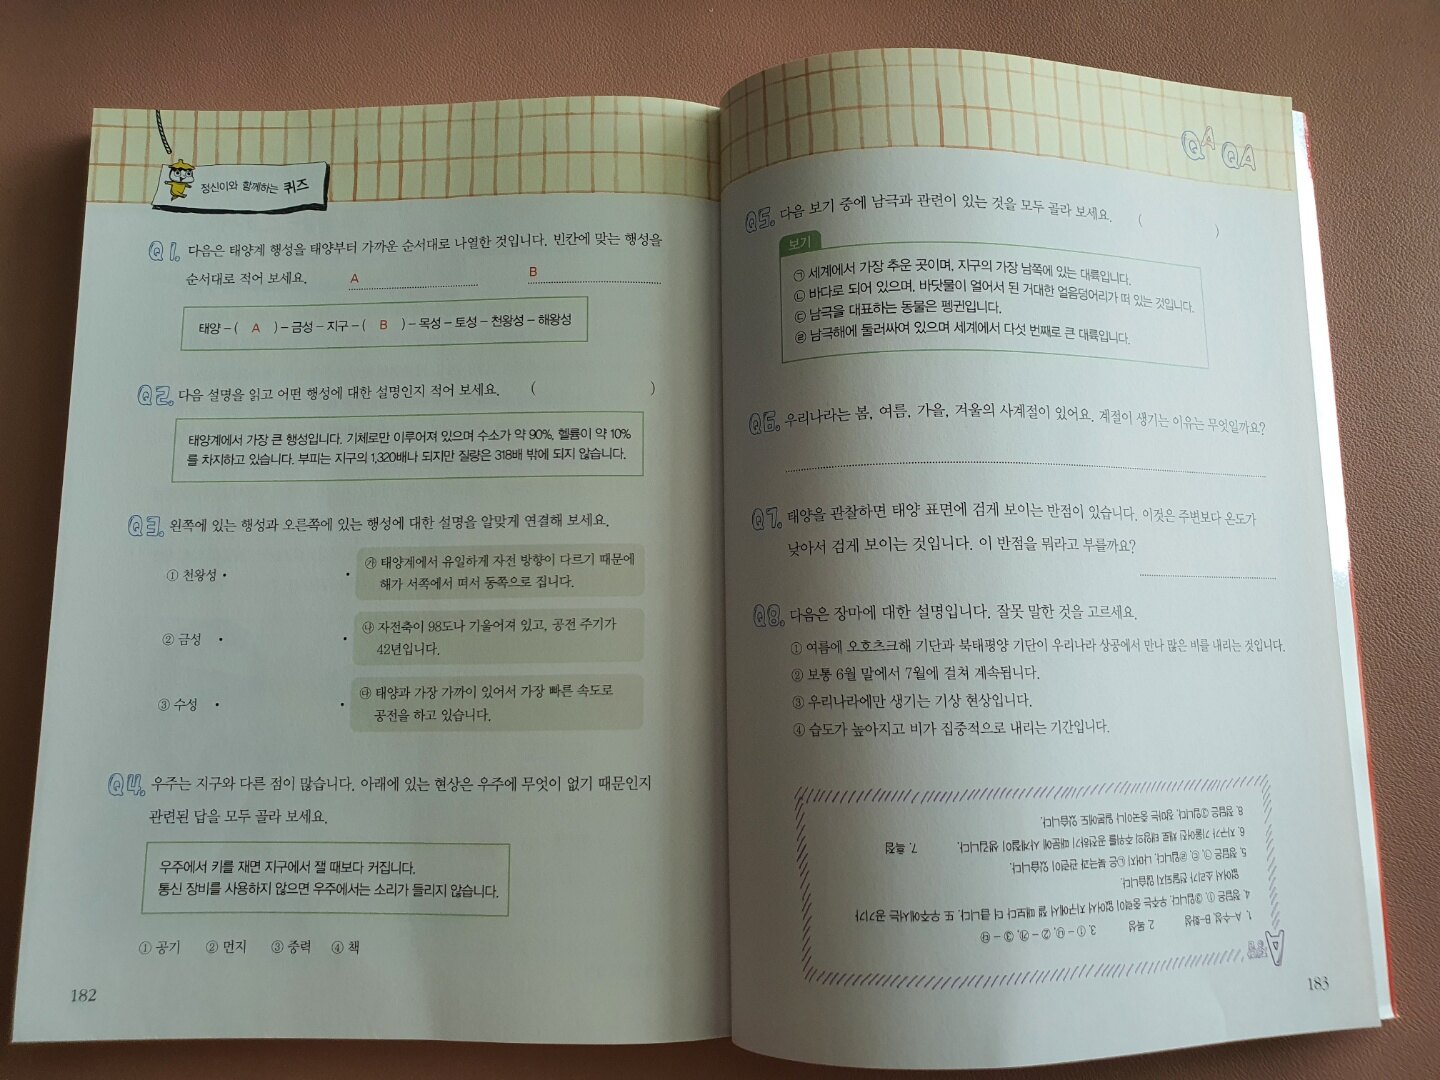 정신이와 함께하는 퀴즈
Q1. 다음은 태양계 행성을 태양부터 가까운 순서대로 나열한 것입니다. 빈칸에 맞는 행성을
순서대로 적어 보세요. A B
태양 – ( A ) – 금성 – 지구 – ( B ) – 목성 – 토성 – 천왕성 – 해왕성
Q2. 다음 설명을 읽고 어떤 행성에 대한 설명인지 적어 보세요. ( )
태양계에서 가장 큰 행성입니다. 기체로만 이루어져 있으며 수소가 약 90%, 헬륨이 약 10%
를 차지하고 있습니다. 부피는 지구의 1,320배나 되지만 질량은 318배 밖에 되지 않습니다.
Q3. 왼쪽에 있는 행성과 오른쪽에 있는 행성에 대한 설명을 알맞게 연결해 보세요.
① 천왕성 •
• ㉮ 태양계에서 유일하게 자전 방향이 다르기 때문에
해가 서쪽에서 떠서 동쪽으로 집니다.
② 금성 •
• ㉯ 자전축이 98도나 기울어져 있고, 공전 주기가
42년입니다.
③ 수성 •
• ㉰ 태양과 가장 가까이 있어서 가장 빠른 속도로
공전을 하고 있습니다.
Q4. 우주는 지구와 다른 점이 많습니다. 아래에 있는 현상은 우주에 무엇이 없기 때문인지
관련된 답을 모두 골라 보세요.
우주에서 키를 재면 지구에서 잴 때보다 커집니다.
통신 장비를 사용하지 않으면 우주에서는 소리가 들리지 않습니다.
① 공기 ② 먼지 ③ 중력 ④ 책
182
QA QA
Q5. 다음 보기 중에 남극과 관련이 있는 것을 모두 골라 보세요. ( )
보기
㉠ 세계에서 가장 추운 곳이며, 지구의 가장 남쪽에 있는 대륙입니다.
㉡ 바다로 되어 있으며, 바닷물이 얼어서 된 거대한 얼음덩어리가 떠 있는 것입니다.
㉢ 남극을 대표하는 동물은 펭귄입니다.
㉣ 남극해에 둘러싸여 있으며 세계에서 다섯 번째로 큰 대륙입니다.
Q6. 우리나라는 봄, 여름, 가을, 겨울의 사계절이 있어요. 계절이 생기는 이유는 무엇일까요?
Q7. 태양을 관찰하면 태양 표면에 검게 보이는 반점이 있습니다. 이것은 주변보다 온도가
낮아서 검게 보이는 것입니다. 이 반점을 뭐라고 부를까요?
Q8. 다음은 장마에 대한 설명입니다. 잘못 말한 것을 고르세요.
① 여름에 오호츠크해 기단과 북태평양 기단이 우리나라 상공에서 만나 많은 비를 내리는 것입니다.
② 보통 6월 말에서 7월에 걸쳐 계속됩니다.
③ 우리나라에만 생기는 기상 현상입니다.
④ 습도가 높아지고 비가 집중적으로 내리는 기간입니다.
A
1. A-수성, B-화성 2. 목성 3. ① – ㉯, ② – ㉮, ③ – ㉰
4. 정답은 ①, ③입니다. 우주는 중력이 없어서 지구에서 잴 때보다 키가 더 큽니다. 또 우주에서는 공기가
없어서 소리가 전달되지 않습니다.
5. 정답은 ㉠, ㉢, ㉣입니다. 나머지 ㉡은 북극과 관련이 있습니다.
6. 지구가 기울어진 채로 태양의 주위를 공전하기 때문에 사계절이 생깁니다. 7. 흑점
8. 정답은 ③입니다. 장마는 중국이나 일본에도 있습니다.
183